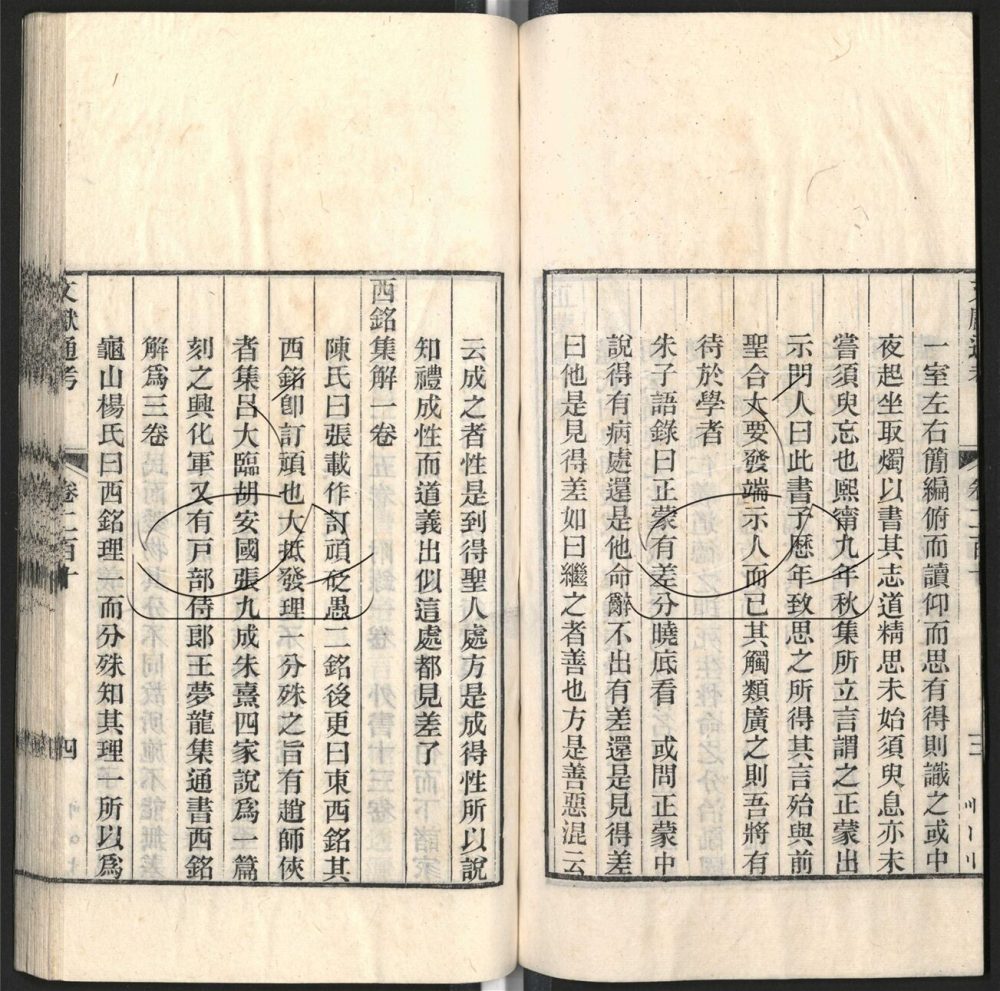 一室左右簡編俯而讀仰而思有得則識之或中
夜起坐取燭以書其志道精思未始須臾息亦未
嘗須臾忘也熙甯九年秋集所立言謂之正蒙出
示門人曰此書予歷年致思之所得其言殆與前
聖合大要發端示人而已其觸類廣之則吾將有
待於學者
朱子語錄曰正蒙有差分曉底看　或問正蒙中
說得有病處還是他命辭不出有差還是見得差
曰他是見得差如曰繼之者善也方是善惡混云
云成之者性是到得聖人處方是成得性所以說
知禮成性而道義出似這處都見差了
西銘集解一卷
陳氏曰張載作訂頑砭愚二銘後更曰東西銘其
西銘卽訂頑也大抵發理一分殊之旨有趙師俠
者集呂大臨胡安國張九成朱熹四家說爲一篇
刻之興化軍又有戸部侍郎王夢龍集通書西銘
解爲三卷
龜山楊氏曰西銘理一而分殊知其理一所以爲
文獻通考　卷二百十　四